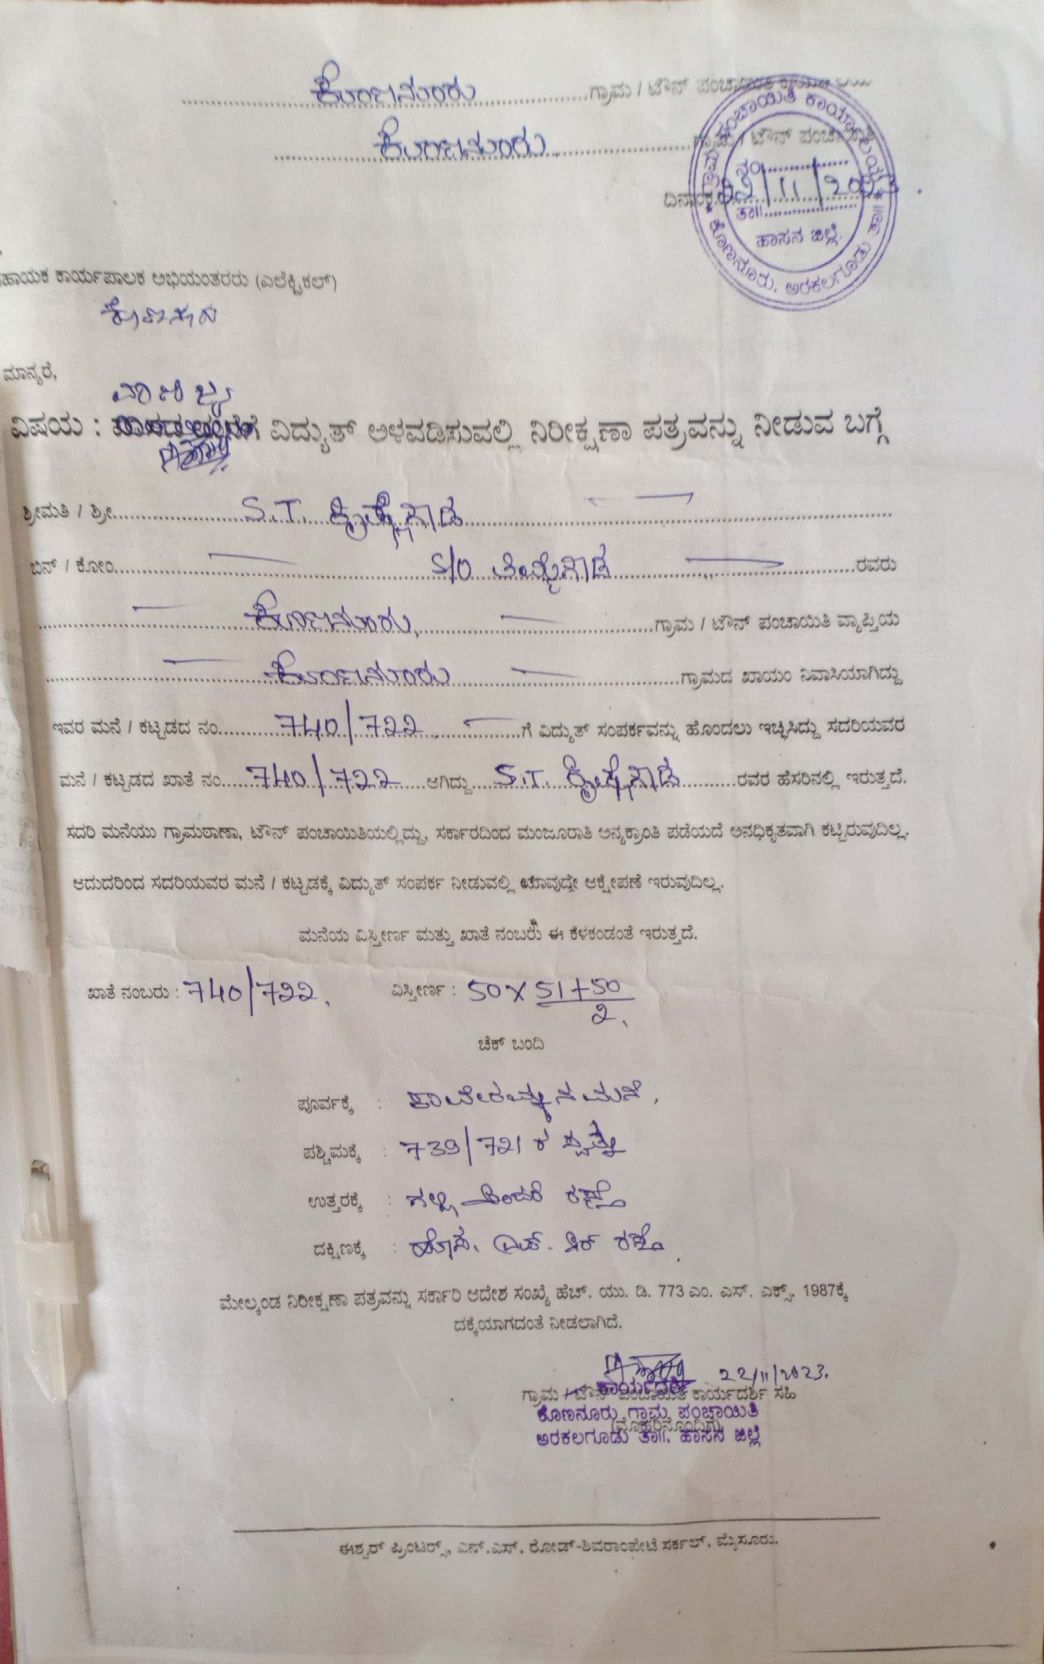 ಕೊಣನೂರು ಗ್ರಾಮ / ಟೌನ್ ಪಂಚಾಯಿತಿ ಕಾರ್ಯಾಲಯ
ಕೊಣನೂರು ಗ್ರಾಮ / ಟೌನ್ ಪಂಚಾಯಿತಿ
ದಿನಾಂಕ /11/
ಗ್ರಾಮ ಪಂಚಾಯಿತಿ ಕಾರ್ಯಾಲಯ
ನಂ
ತಾ॥
ಹಾಸನ ಜಿಲ್ಲೆ.
ಕೊಣನೂರು. ಅರಕಲಗೂಡು ತಾ॥
ಹಾಯಕ ಕಾರ್ಯಪಾಲಕ ಅಭಿಯಂತರರು (ಎಲೆಕ್ಟ್ರಿಕಲ್)
ಮಾನ್ಯರೆ,
ವಾಣಿಜ್ಯ
ವಿಷಯ : ಗೆ ವಿದ್ಯುತ್ ಅಳವಡಿಸುವಲ್ಲಿ ನಿರೀಕ್ಷಣಾ ಪತ್ರವನ್ನು ನೀಡುವ ಬಗ್ಗೆ
ಶ್ರೀಮತಿ / ಶ್ರೀ S.T. ಕೃಷ್ಣೇಗೌಡ
ಬಿನ್ / ಕೋಂ S/O ತಿಮ್ಮೇಗೌಡ ರವರು
ಕೊಣನೂರು, ಗ್ರಾಮ / ಟೌನ್ ಪಂಚಾಯಿತಿ ವ್ಯಾಪ್ತಿಯ
ಕೊಣನೂರು ಗ್ರಾಮದ ಖಾಯಂ ನಿವಾಸಿಯಾಗಿದ್ದು
ಇವರ ಮನೆ / ಕಟ್ಟಡದ ನಂ. 740/722 ಗೆ ವಿದ್ಯುತ್ ಸಂಪರ್ಕವನ್ನು ಹೊಂದಲು ಇಚ್ಛಿಸಿದ್ದು ಸದರಿಯವರ
ಮನೆ / ಕಟ್ಟಡದ ಖಾತೆ ನಂ. 740/722 ಆಗಿದ್ದು S.T. ಕೃಷ್ಣೇಗೌಡ ರವರ ಹೆಸರಿನಲ್ಲಿ ಇರುತ್ತದೆ.
ಸದರಿ ಮನೆಯು ಗ್ರಾಮಠಾಣಾ, ಟೌನ್ ಪಂಚಾಯಿತಿಯಲ್ಲಿದ್ದು, ಸರ್ಕಾರದಿಂದ ಮಂಜೂರಾತಿ ಅನ್ಯಕ್ರಾಂತಿ ಪಡೆಯದೆ ಅನಧಿಕೃತವಾಗಿ ಕಟ್ಟಿರುವುದಿಲ್ಲ.
ಆದುದರಿಂದ ಸದರಿಯವರ ಮನೆ / ಕಟ್ಟಡಕ್ಕೆ ವಿದ್ಯುತ್ ಸಂಪರ್ಕ ನೀಡುವಲ್ಲಿ ಯಾವುದೇ ಆಕ್ಷೇಪಣೆ ಇರುವುದಿಲ್ಲ.
ಮನೆಯ ವಿಸ್ತೀರ್ಣ ಮತ್ತು ಖಾತೆ ನಂಬರು ಈ ಕೆಳಕಂಡಂತೆ ಇರುತ್ತದೆ.
ಖಾತೆ ನಂಬರು : 740/722, ವಿಸ್ತೀರ್ಣ : 50 x 51+50
2
ಚೆಕ್ ಬಂದಿ
ಪೂರ್ವಕ್ಕೆ : ಕಾವೇರಮ್ಮನ ಮನೆ,
ಪಶ್ಚಿಮಕ್ಕೆ : 739/721 ರ ಸ್ವತ್ತು
ಉತ್ತರಕ್ಕೆ : ಗಲ್ಲಿ ರಸ್ತೆ
ದಕ್ಷಿಣಕ್ಕೆ : ರಸ್ತೆ
ಮೇಲ್ಕಂಡ ನಿರೀಕ್ಷಣಾ ಪತ್ರವನ್ನು ಸರ್ಕಾರಿ ಆದೇಶ ಸಂಖ್ಯೆ ಹೆಚ್. ಯು. ಡಿ. 773 ಎಂ. ಎಸ್. ಎಕ್ಸ್. 1987ಕ್ಕೆ
ದಕ್ಕೆಯಾಗದಂತೆ ನೀಡಲಾಗಿದೆ.
22/11/2023.
ಗ್ರಾಮ / ಟೌನ್ ಪಂಚಾಯಿತಿ ಕಾರ್ಯದರ್ಶಿ ಸಹಿ
ಕಾರ್ಯದರ್ಶಿ
ಕೊಣನೂರು ಗ್ರಾಮ ಪಂಚಾಯಿತಿ
(ಮೊಹರಿನೊಂದಿಗೆ)
ಅರಕಲಗೂಡು ತಾ॥. ಹಾಸನ ಜಿಲ್ಲೆ
ಈಶ್ವರ್ ಪ್ರಿಂಟರ್ಸ್, ಎನ್.ಎಸ್. ರೋಡ್-ಶಿವರಾಂಪೇಟೆ ಸರ್ಕಲ್, ಮೈಸೂರು.